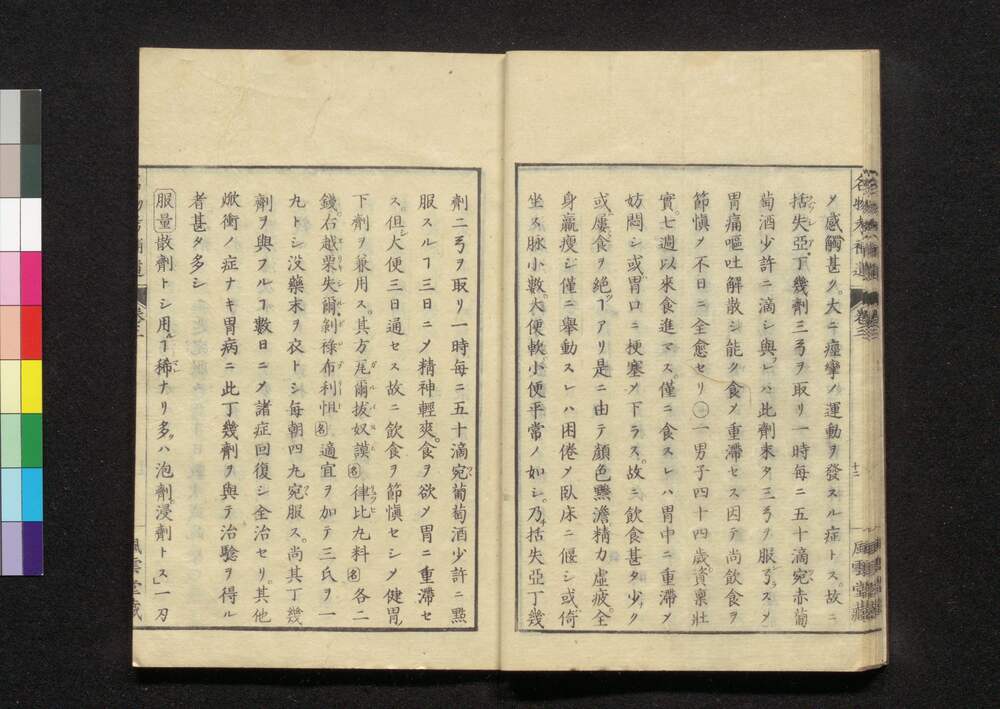 メ感觸甚ク。大ニ瘈攣ノ運動ヲ發スル症トス。故ニ
括失亞丁幾劑三弓ヲ取リ一時毎ニ五十滴宛赤葡
萄酒少許ニ滴シ與レハ此劑末タ三弓ヲ服了スメ
胃痛嘔吐解散シ能ク食メ重滯セス因テ尚飲食ヲ
節愼メ不日ニ全愈セリ○一男子四十四歳資稟壯
實。七週以來食進マス。僅ニ食スレハ胃中ニ重滯メ
妨悶シ或胃口ニ梗塞メ下ラス。故ニ飲食甚タ少ク
或屢食ヲ絶ヿアリ是ニ由テ顔色黲澹精力虚疲。全
身羸瘦シ僅ニ擧動スレハ困倦メ臥床ニ偃シ或倚
坐ス脉小數。大便軟小便平常ノ如シ。乃括失亞丁幾
十二
風雲堂藏
劑二弓ヲ取リ一時毎ニ五十滴宛葡萄酒少許ニ點
服スルヿ三日ニメ精神輕爽。食ヲ欲メ胃ニ重滯セ
ス但大便三日通セス故ニ飲食ヲ節愼セシメ健胃
下劑ヲ兼用ス。其方尾爾拔奴謨名律比九料名各二
錢。右越栗失爾剝祿布利怛名適宜ヲ加テ三氏ヲ一
九トシ没藥末ヲ衣トシ毎朝四九宛服ス。尚其丁幾
劑ヲ與フルヿ數日ニメ諸症回復シ全治セリ。其他
焮衝ノ症ナキ胃病ニ此丁幾劑ヲ與テ治驗ヲ得ル
者甚タ多シ
服量散劑トシ用ルヿ稀ナリ多ハ泡劑。浸劑トス」一刃